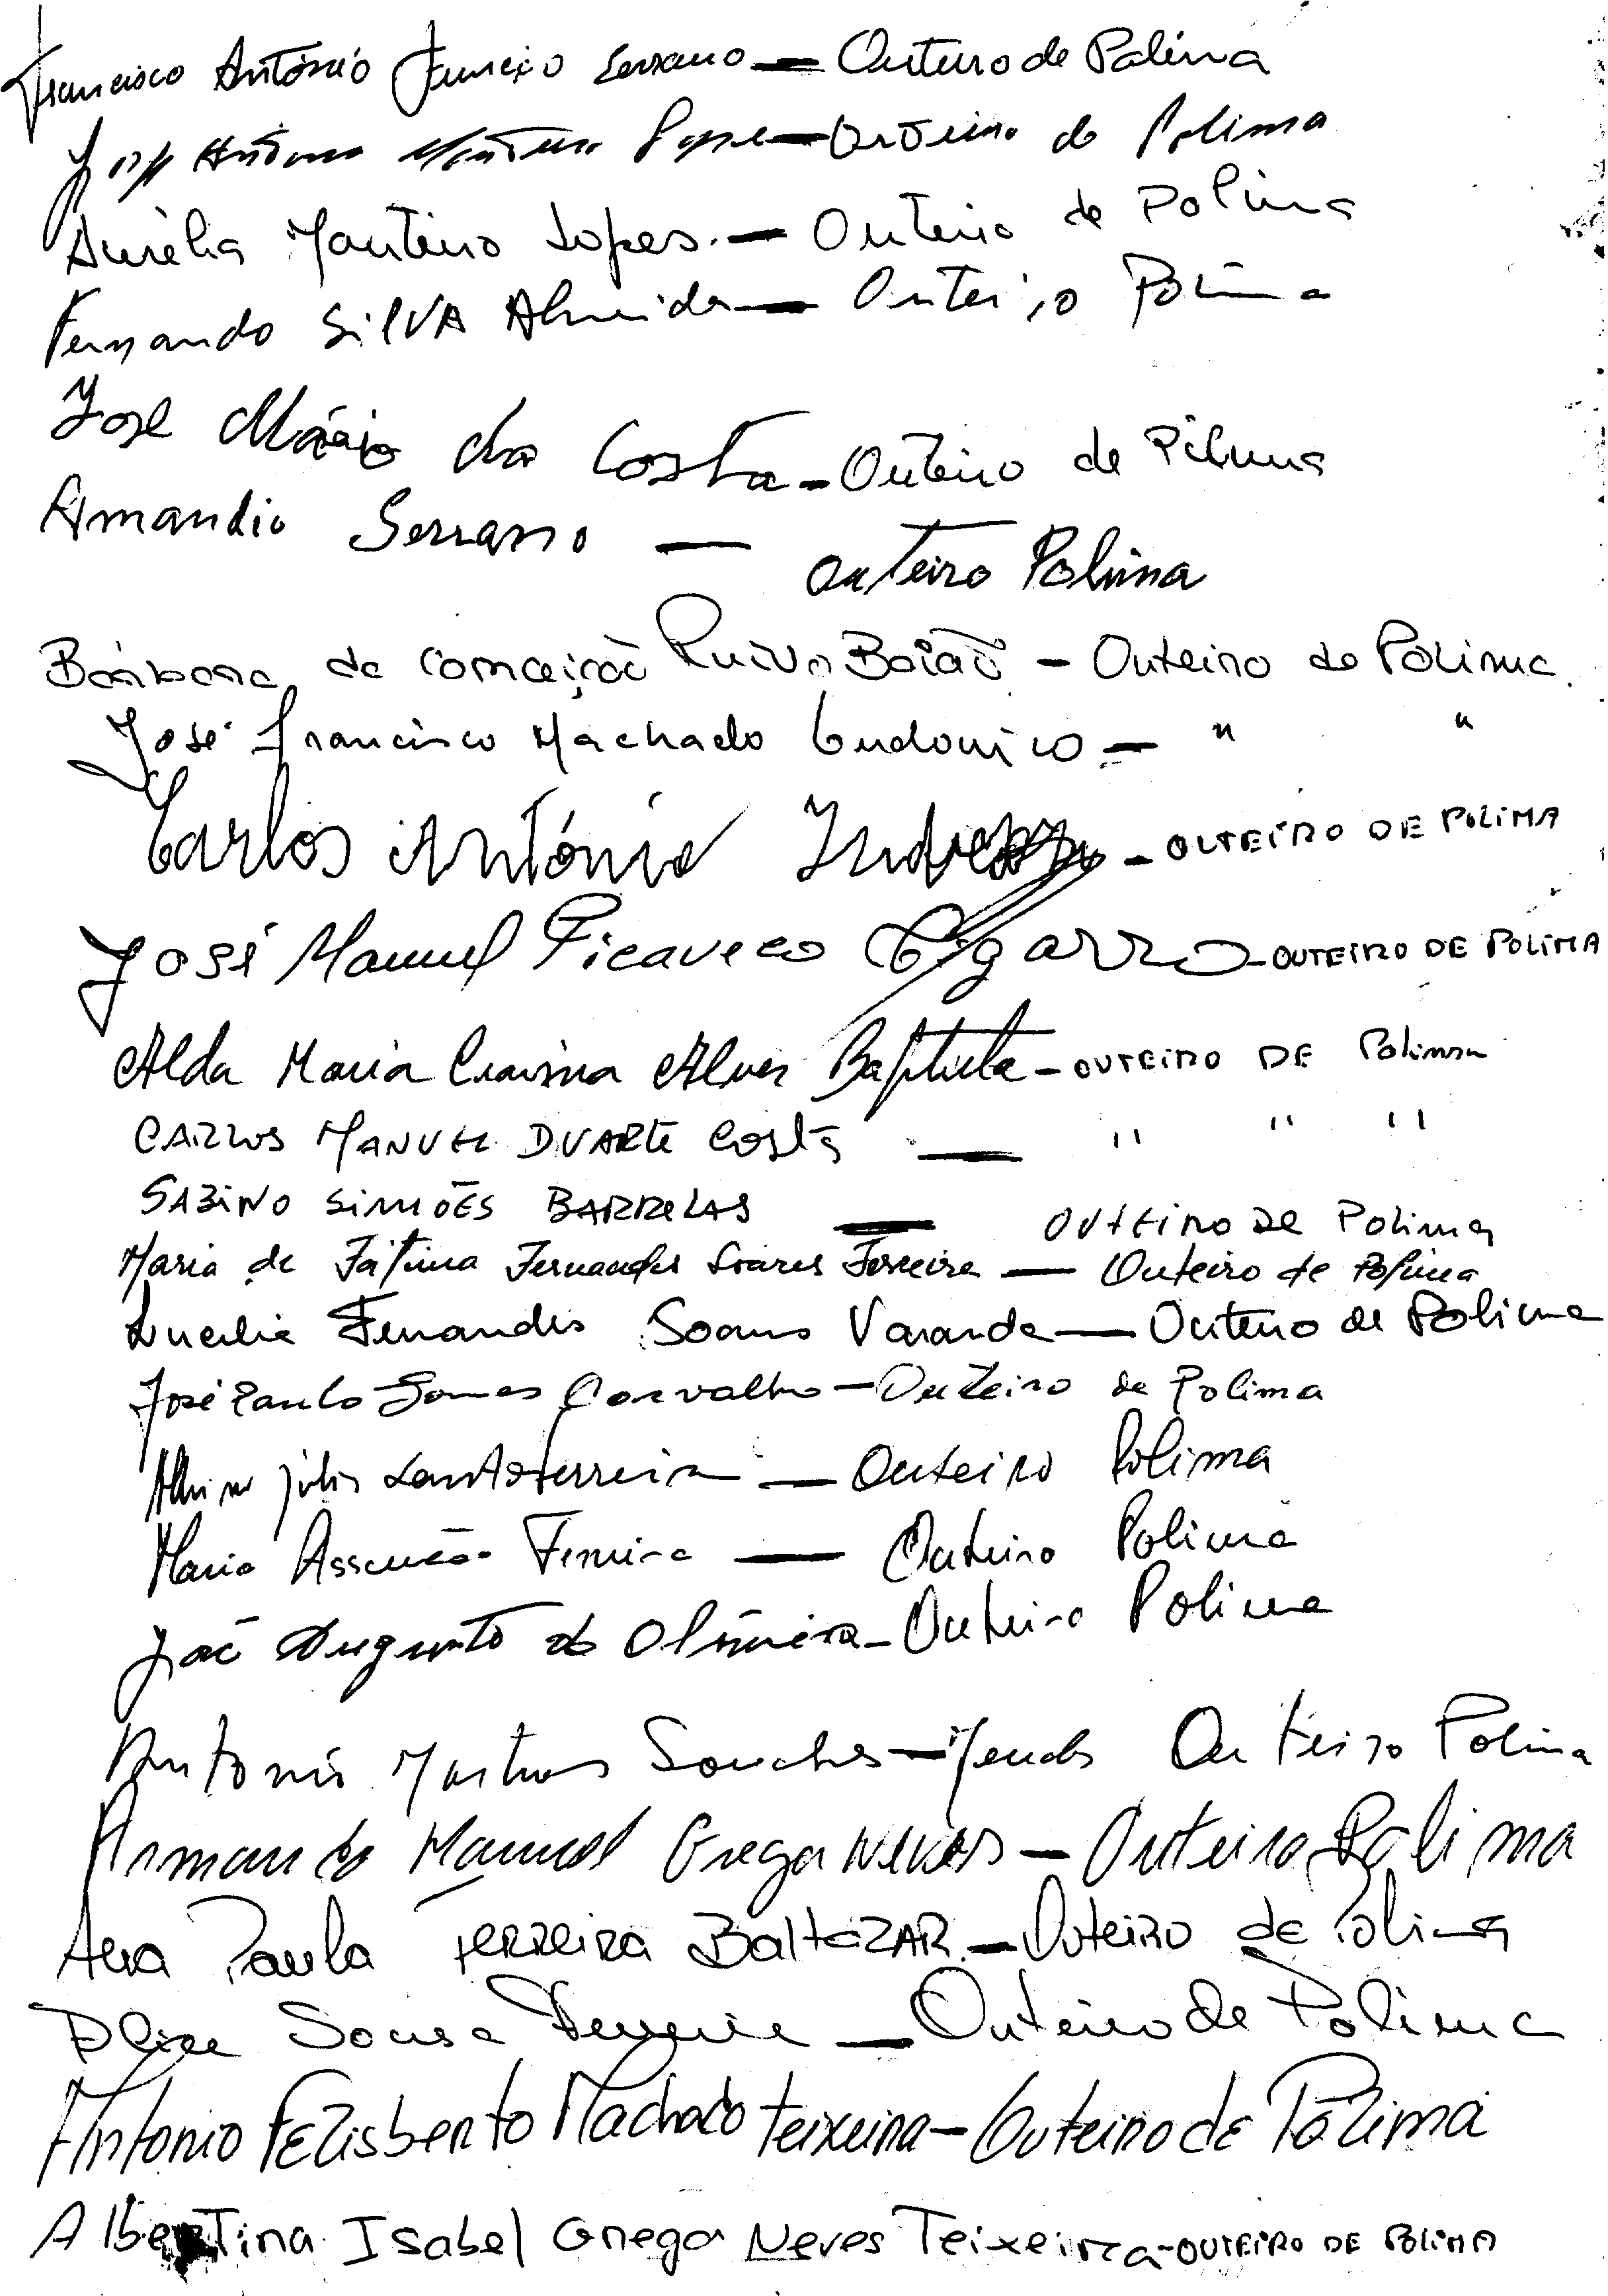 Francisco António Serrano — Outeiro de Polima
José António Monteiro Lopes — Outeiro de Polima
Aurélia Monteiro Lopes. — Outeiro de Polima
Fernando SILVA Almeida — Outeiro Polima
José Mário da Costa - Outeiro de Polima
Amandio Serrano — Outeiro Polima
Bárbara da Conceição Ruivo Baião - Outeiro de Polima.
José Francisco Machado Ludovico - " "
Carlos António - OUTEIRO DE POLIMA
José Manuel Picaveco Cigarro - OUTEIRO DE POLIMA
Alda Maria Alves Baptista - OUTEIRO DE Polima
CARLOS MANUEL DUARTE Costa — " " "
SABINO SIMÕES BARRELAS — OUTEIRO DE Polima
Maria de Fátima Fernandes Soares Ferreira — Outeiro de Polima
Lucilia Fernandes Soares Varanda — Outeiro de Polima
José Paulo Gomes Carvalho - Outeiro de Polima
Albino Júlio Santos Ferreira — Outeiro Polima
Maria Assunção Ferreira — Outeiro Polima
José Augusto de Oliveira - Outeiro Polima
Antonio Martins Sanches — Mendes Outeiro Polima
Armando Manuel Grega Neves — Outeiro Polima
Ana Paula Ferreira BaltaZAR. — Outeiro de Polima
Sousa Ferreira — Outeiro de Polima
Antonio FElisberto Machado Teixeira - Outeiro de Polima
Albertina Isabel Grega Neves Teixeira - OUTEIRO DE POLIMA